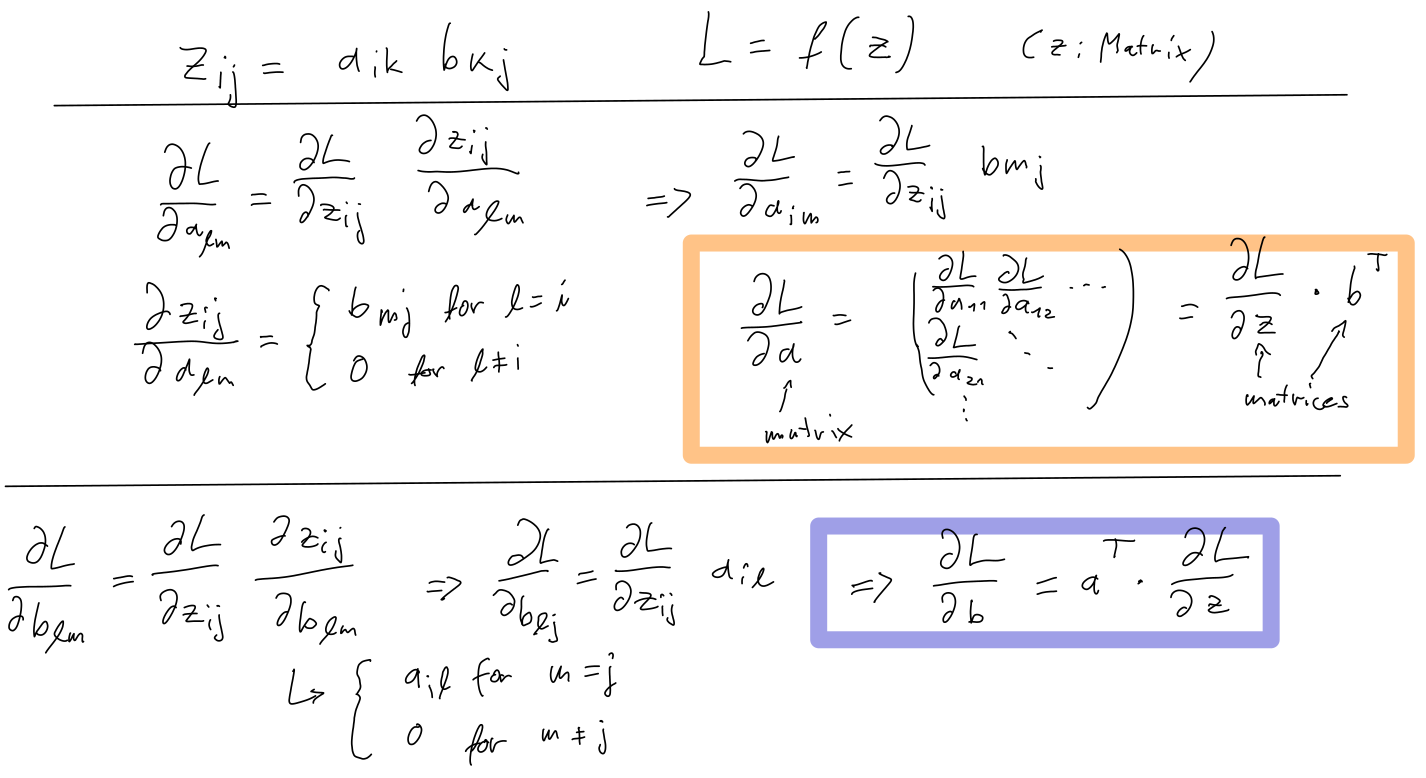 z_ij = a_ik b_kj   L = f(z)   (z: Matrix)
∂L/∂a_lm = ∂L/∂z_ij ∂z_ij/∂a_lm => ∂L/∂a_im = ∂L/∂z_ij b_mj
∂z_ij/∂a_lm = { b_mj for l = i
0 for l ≠ i
∂L/∂a = ( ∂L/∂a_11 ∂L/∂a_12 ...
∂L/∂a_21 ⋱
⋮ ) = ∂L/∂z · b^T
↑ matrix
↑ ↗ matrices
∂L/∂b_lm = ∂L/∂z_ij ∂z_ij/∂b_lm => ∂L/∂b_lj = ∂L/∂z_ij a_il => ∂L/∂b = a^T · ∂L/∂z
↳ { a_il for m = j
0 for m ≠ j